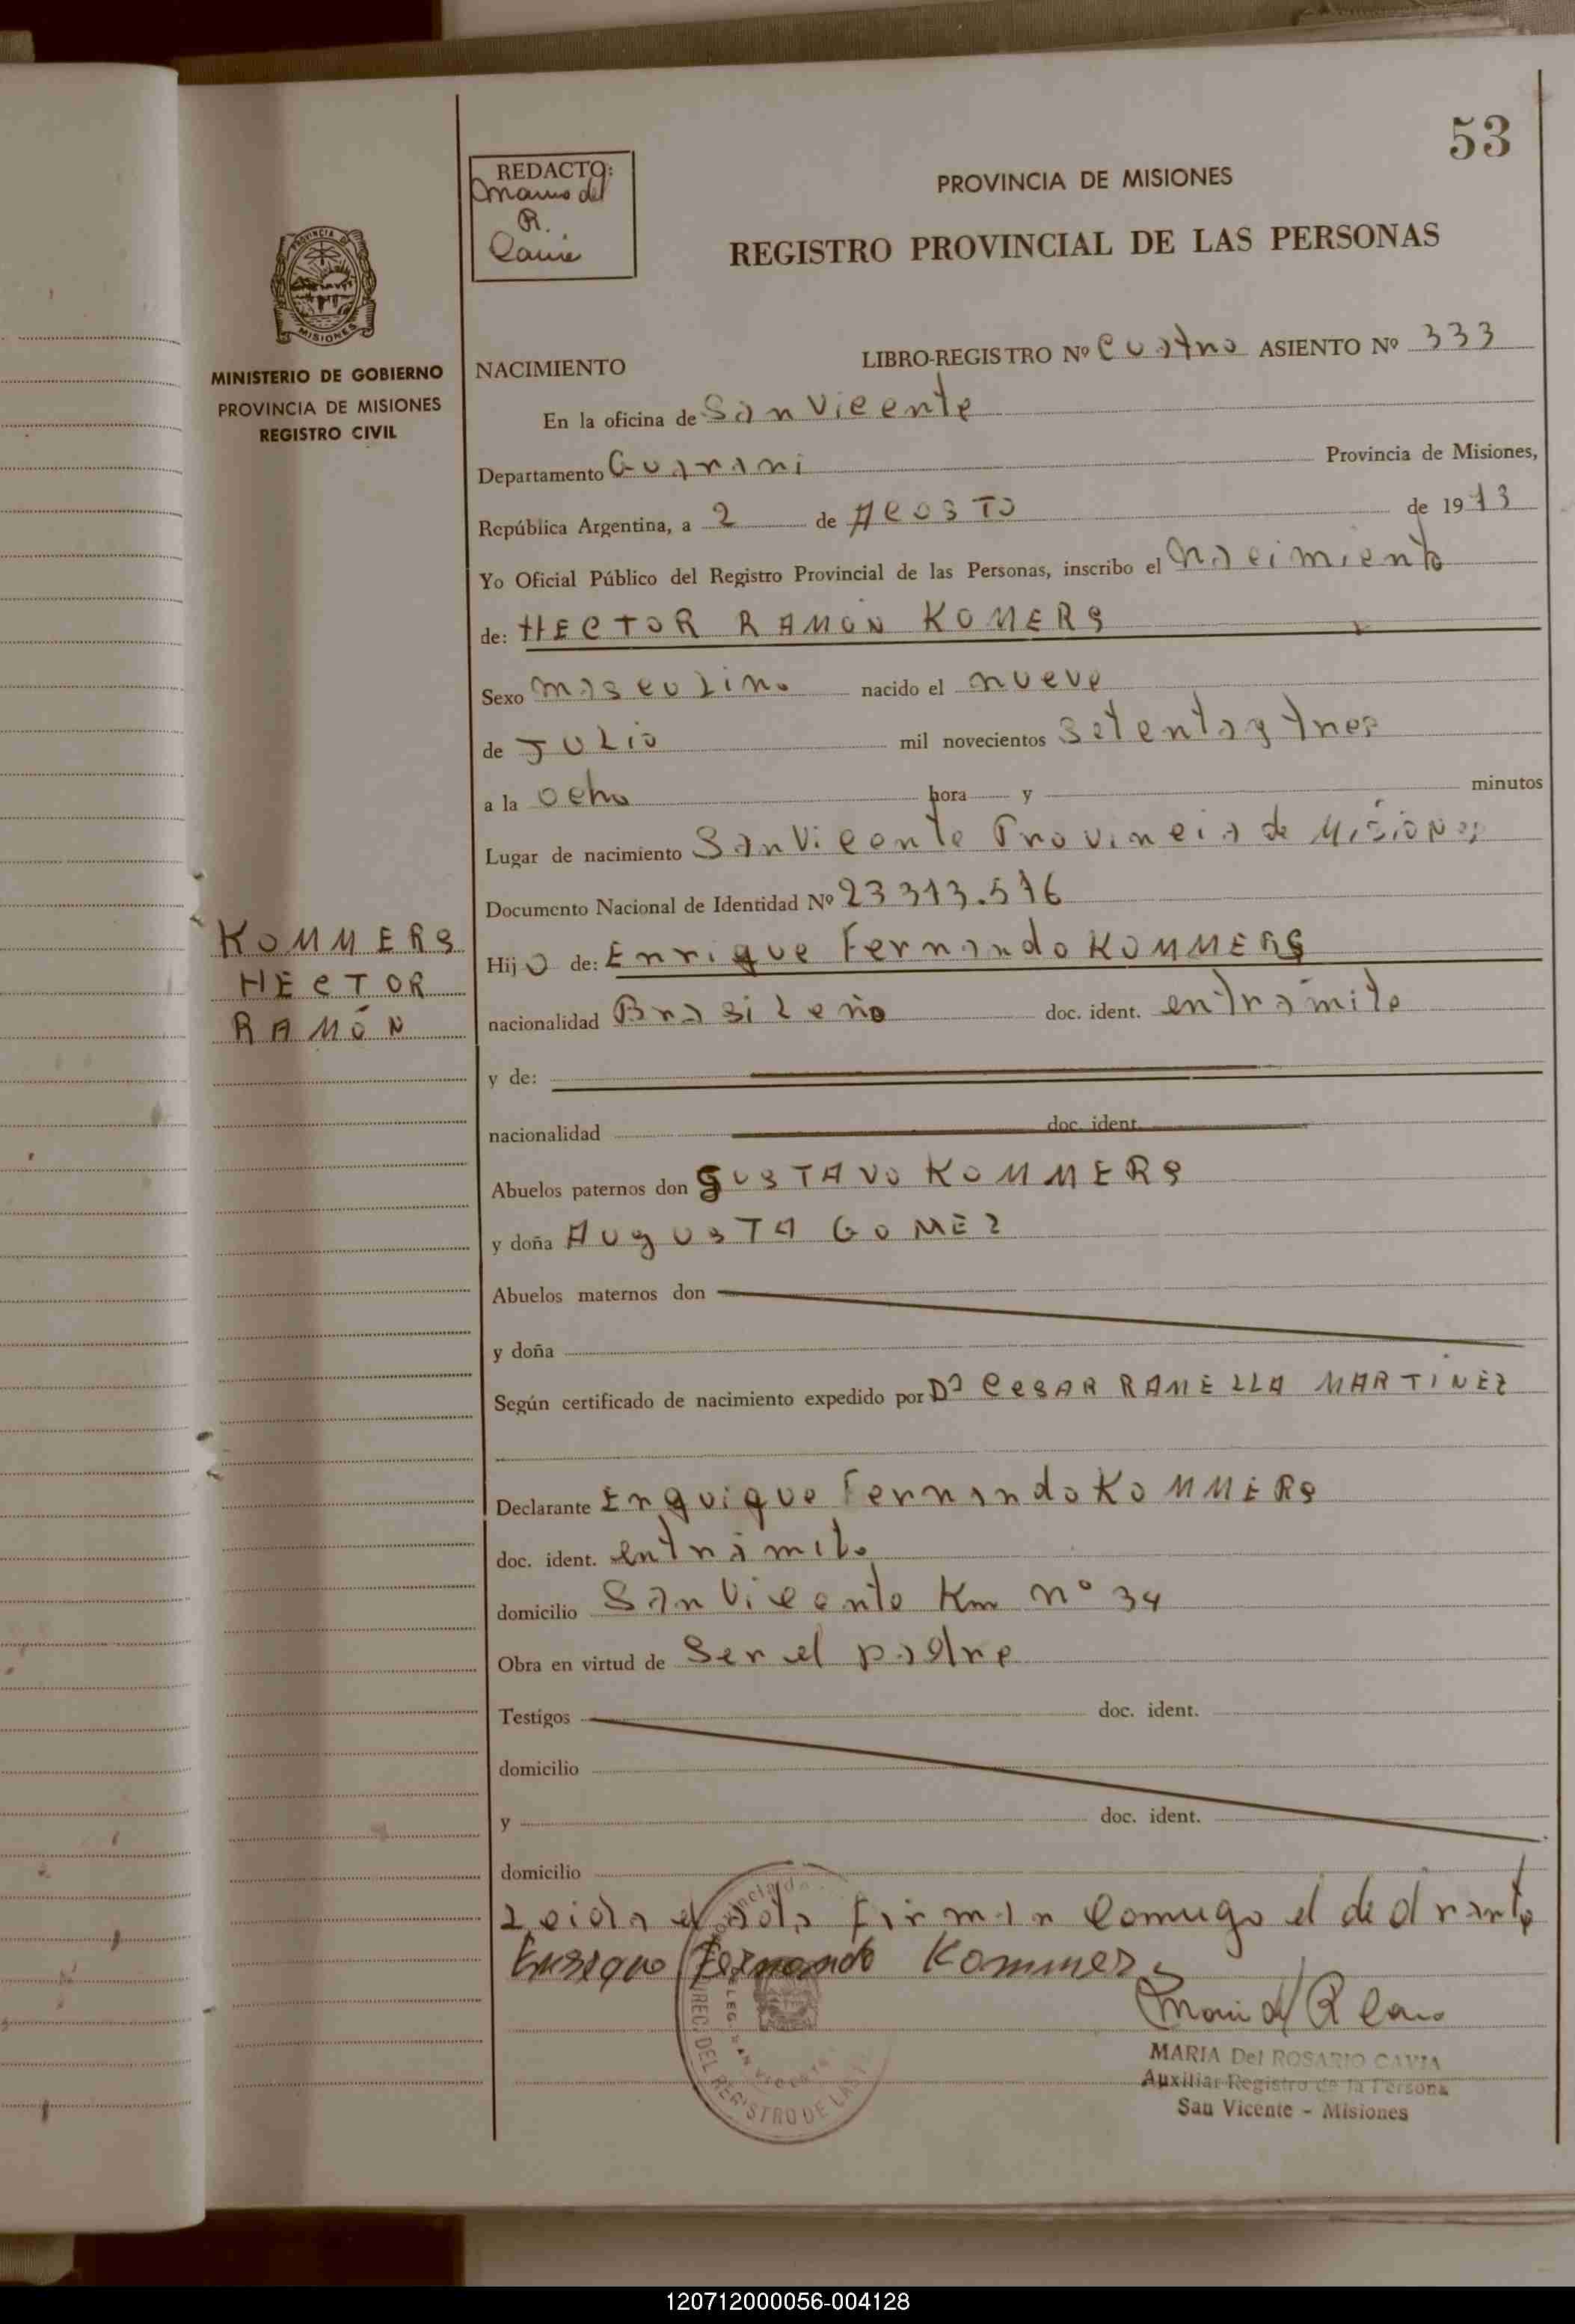 53
REDACTO:
PROVINCIA DE MISIONES
REGISTRO PROVINCIAL DE LAS PERSONAS
PROVINCIA DE
MISIONES
MINISTERIO DE GOBIERNO
PROVINCIA DE MISIONES
REGISTRO CIVIL
NACIMIENTO LIBRO-REGISTRO Nº Cuatro ASIENTO Nº 333
En la oficina de San Vicente
Departamento Guarani Provincia de Misiones,
República Argentina, a 2 de AGOSTO de 1973
Yo Oficial Público del Registro Provincial de las Personas, inscribo el Nacimiento
de: HECTOR RAMÓN KOMERS
Sexo masculino nacido el nueve
de JULIO mil novecientos setenta y tres
a la ocho hora y minutos
Lugar de nacimiento San Vicente Provincia de Misiones
Documento Nacional de Identidad Nº 23 313.576
KOMMERS
HECTOR
RAMÓN
Hijo de: Enrique Fernando KOMMERS
nacionalidad Brasileño doc. ident. en trámite
y de:
nacionalidad doc. ident.
Abuelos paternos don GUSTAVO KOMMERS
y doña AUgUSTA GOMEZ
Abuelos maternos don
y doña
Según certificado de nacimiento expedido por Dº CESAR RAMELLA MARTINEZ
Declarante Enquique Fernando KOMMERS
doc. ident. en trámite
domicilio San Vicente Km nº 34
Obra en virtud de Ser el padre
Testigos doc. ident.
domicilio
y doc. ident.
domicilio
Leida el acta firman comugo el declrante
Enrique Fernando Kommers
MARIA Del ROSARIO CAVIA
Auxiliar Registro de la Persona
San Vicente - Misiones
DIREC. DEL REGISTRO DE LAS
120712000056-004128